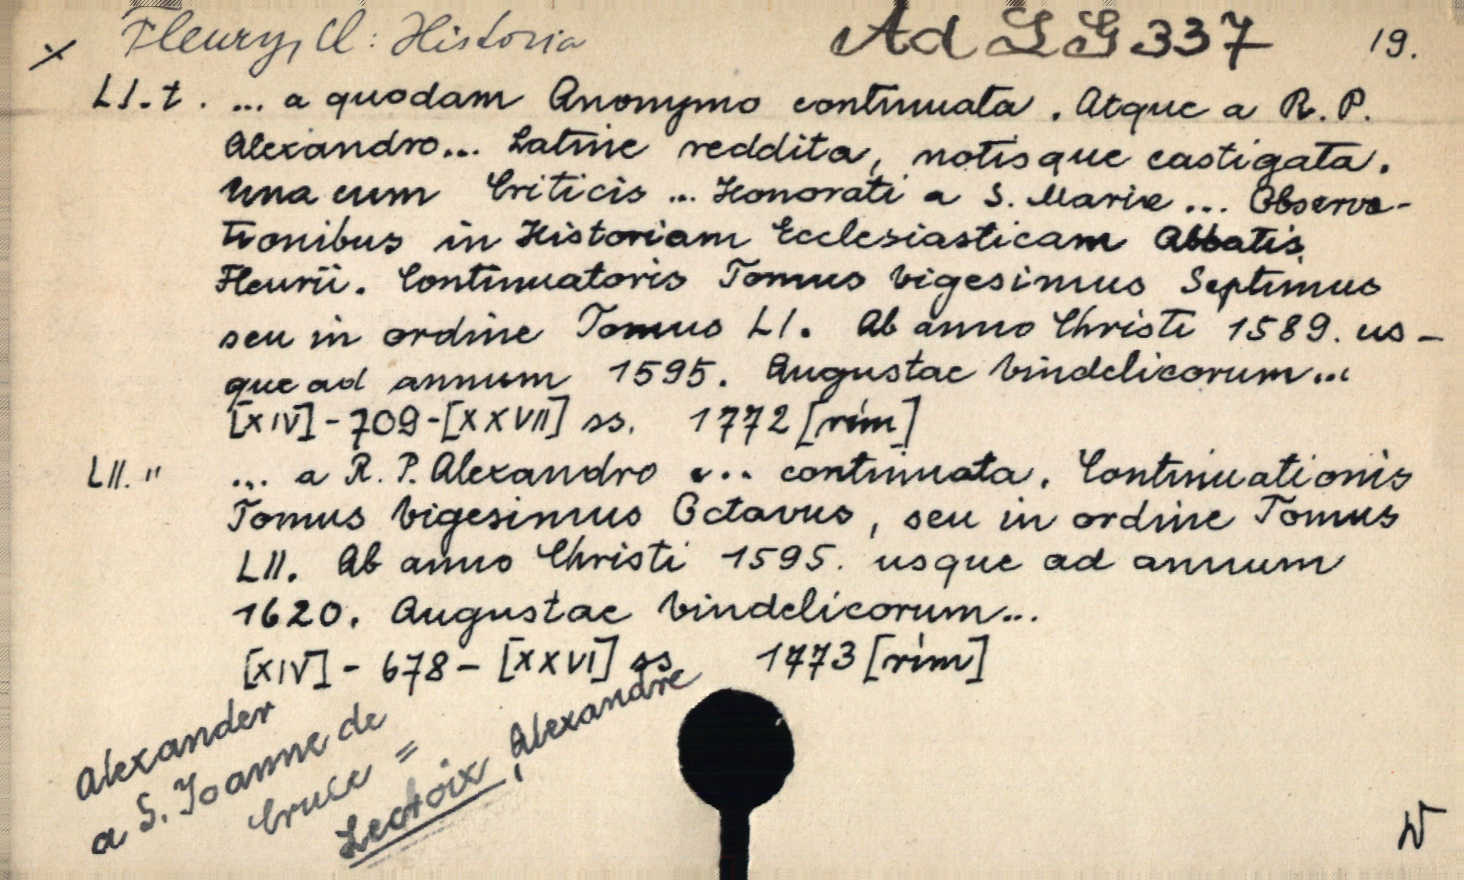 x Fleury, Cl: Historia Ad LG 337 19.
LI. t. ... a quodam Anonymo continuata. Atque a R. P.
Alexandro... Latine reddita, notisque castigata.
Una cum Criticis ... Honorati a S. Marie ... Observa-
tionibus in Historiam Ecclesiasticam Abbatis
Fleurii. Continuatoris Tomus Vigesimus Septimus
seu in ordine Tomus LI. Ab anno Christi 1589. us-
que ad annum 1595. Augustae Vindelicorum...
[XIV] - 709 - [XXVII] ss. 1772 [rím]
LII. " ... a R. P. Alexandro ... continuata. Continuationis
Tomus Vigesimus Octavus, seu in ordine Tomus
LII. Ab anno Christi 1595. usque ad annum
1620. Augustae Vindelicorum...
[XIV] - 678 - [XXVI] ss 1773 [rím]
Alexander
a S. Joanne de
Cruce =
Lecroix, Alexandre